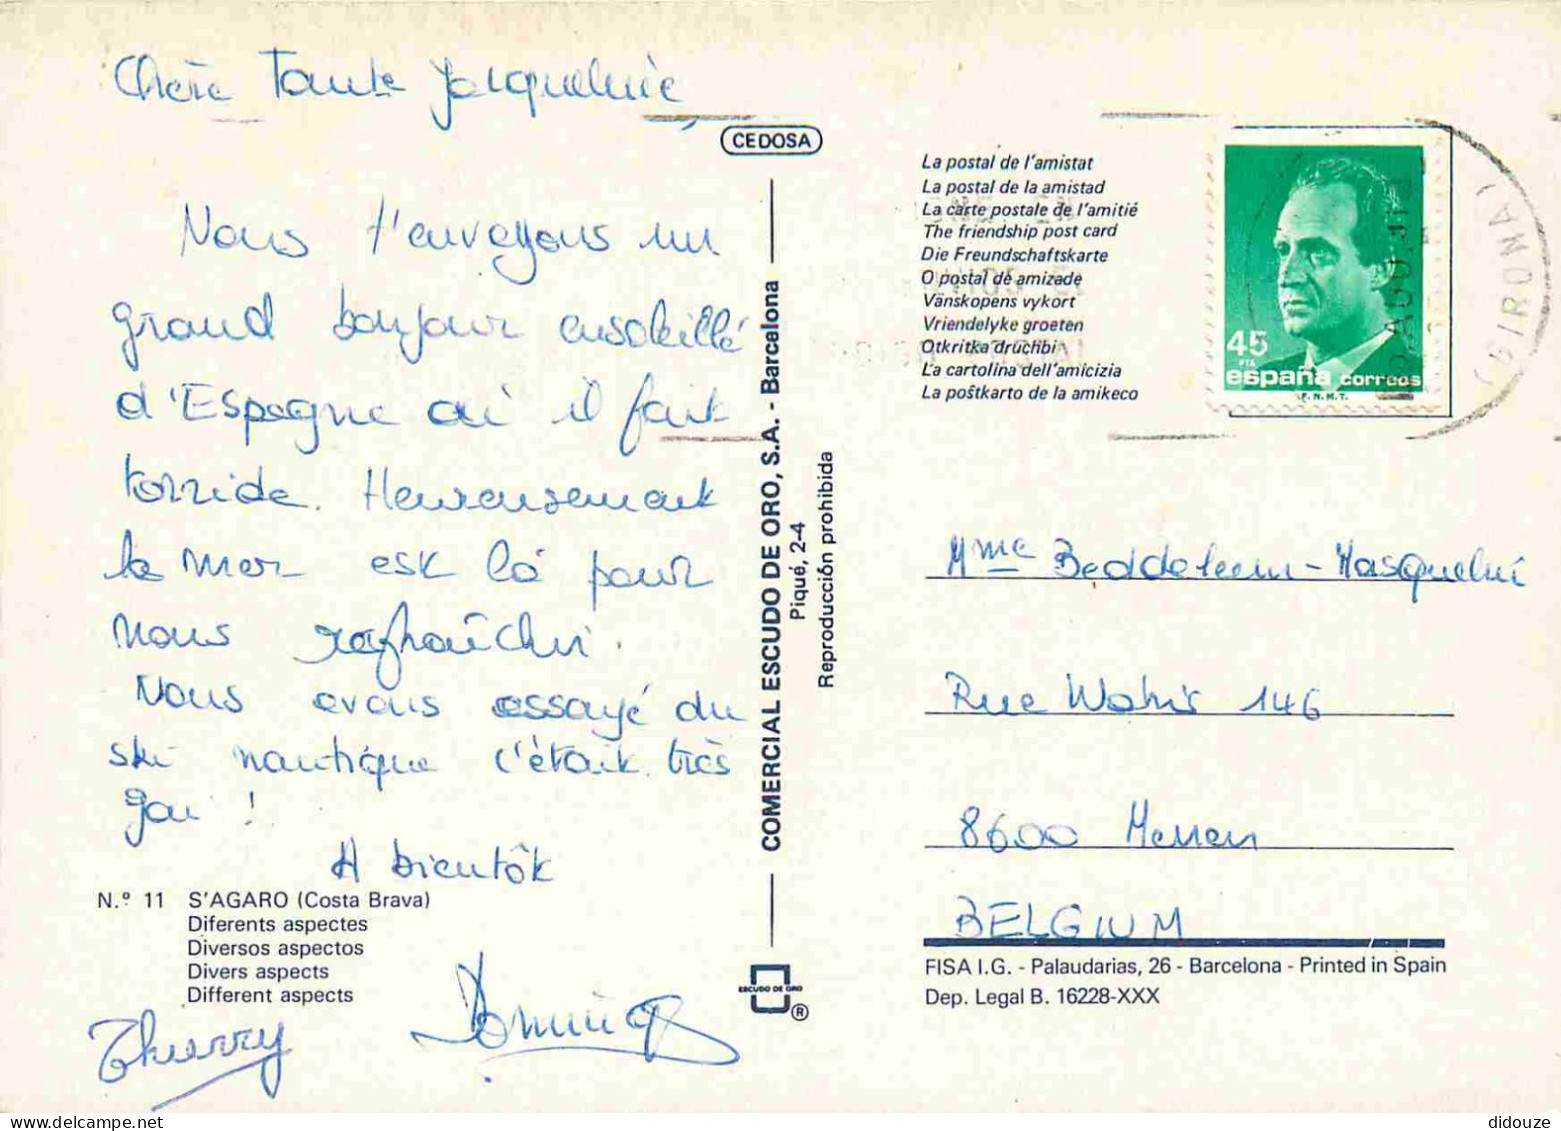 Chère Tante Jacqueline,
Nous t'envoyons un
grand bonjour ensoleillé
d'Espagne où il fait
torride. Heureusement
la mer est là pour
nous rafraîchir.
Nous avons essayé du
ski nautique c'était très
gai !
A bientôt
Thierry
Dominique
N.º 11 S'AGARO (Costa Brava)
Diferents aspectes
Diversos aspectos
Divers aspects
Different aspects
CEDOSA
COMERCIAL ESCUDO DE ORO, S.A. - Barcelona
Piqué, 2-4
Reproducción prohibida
ESCUDO DE ORO
®
La postal de l'amistat
La postal de la amistad
La carte postale de l'amitié
The friendship post card
Die Freundschaftskarte
O postal de amizade
Vänskopens vykort
Vriendelyke groeten
Otkritka druchbi
La cartolina dell'amicizia
La poŝtkarto de la amikeco
45
PTA
españa correos
F.N.M.T.
(GIRONA)
Mme Beddeleem-Masquelin
Rue Wahis 146
8600 Menen
BELGIUM
FISA I.G. - Palaudarias, 26 - Barcelona - Printed in Spain
Dep. Legal B. 16228-XXX
didouze